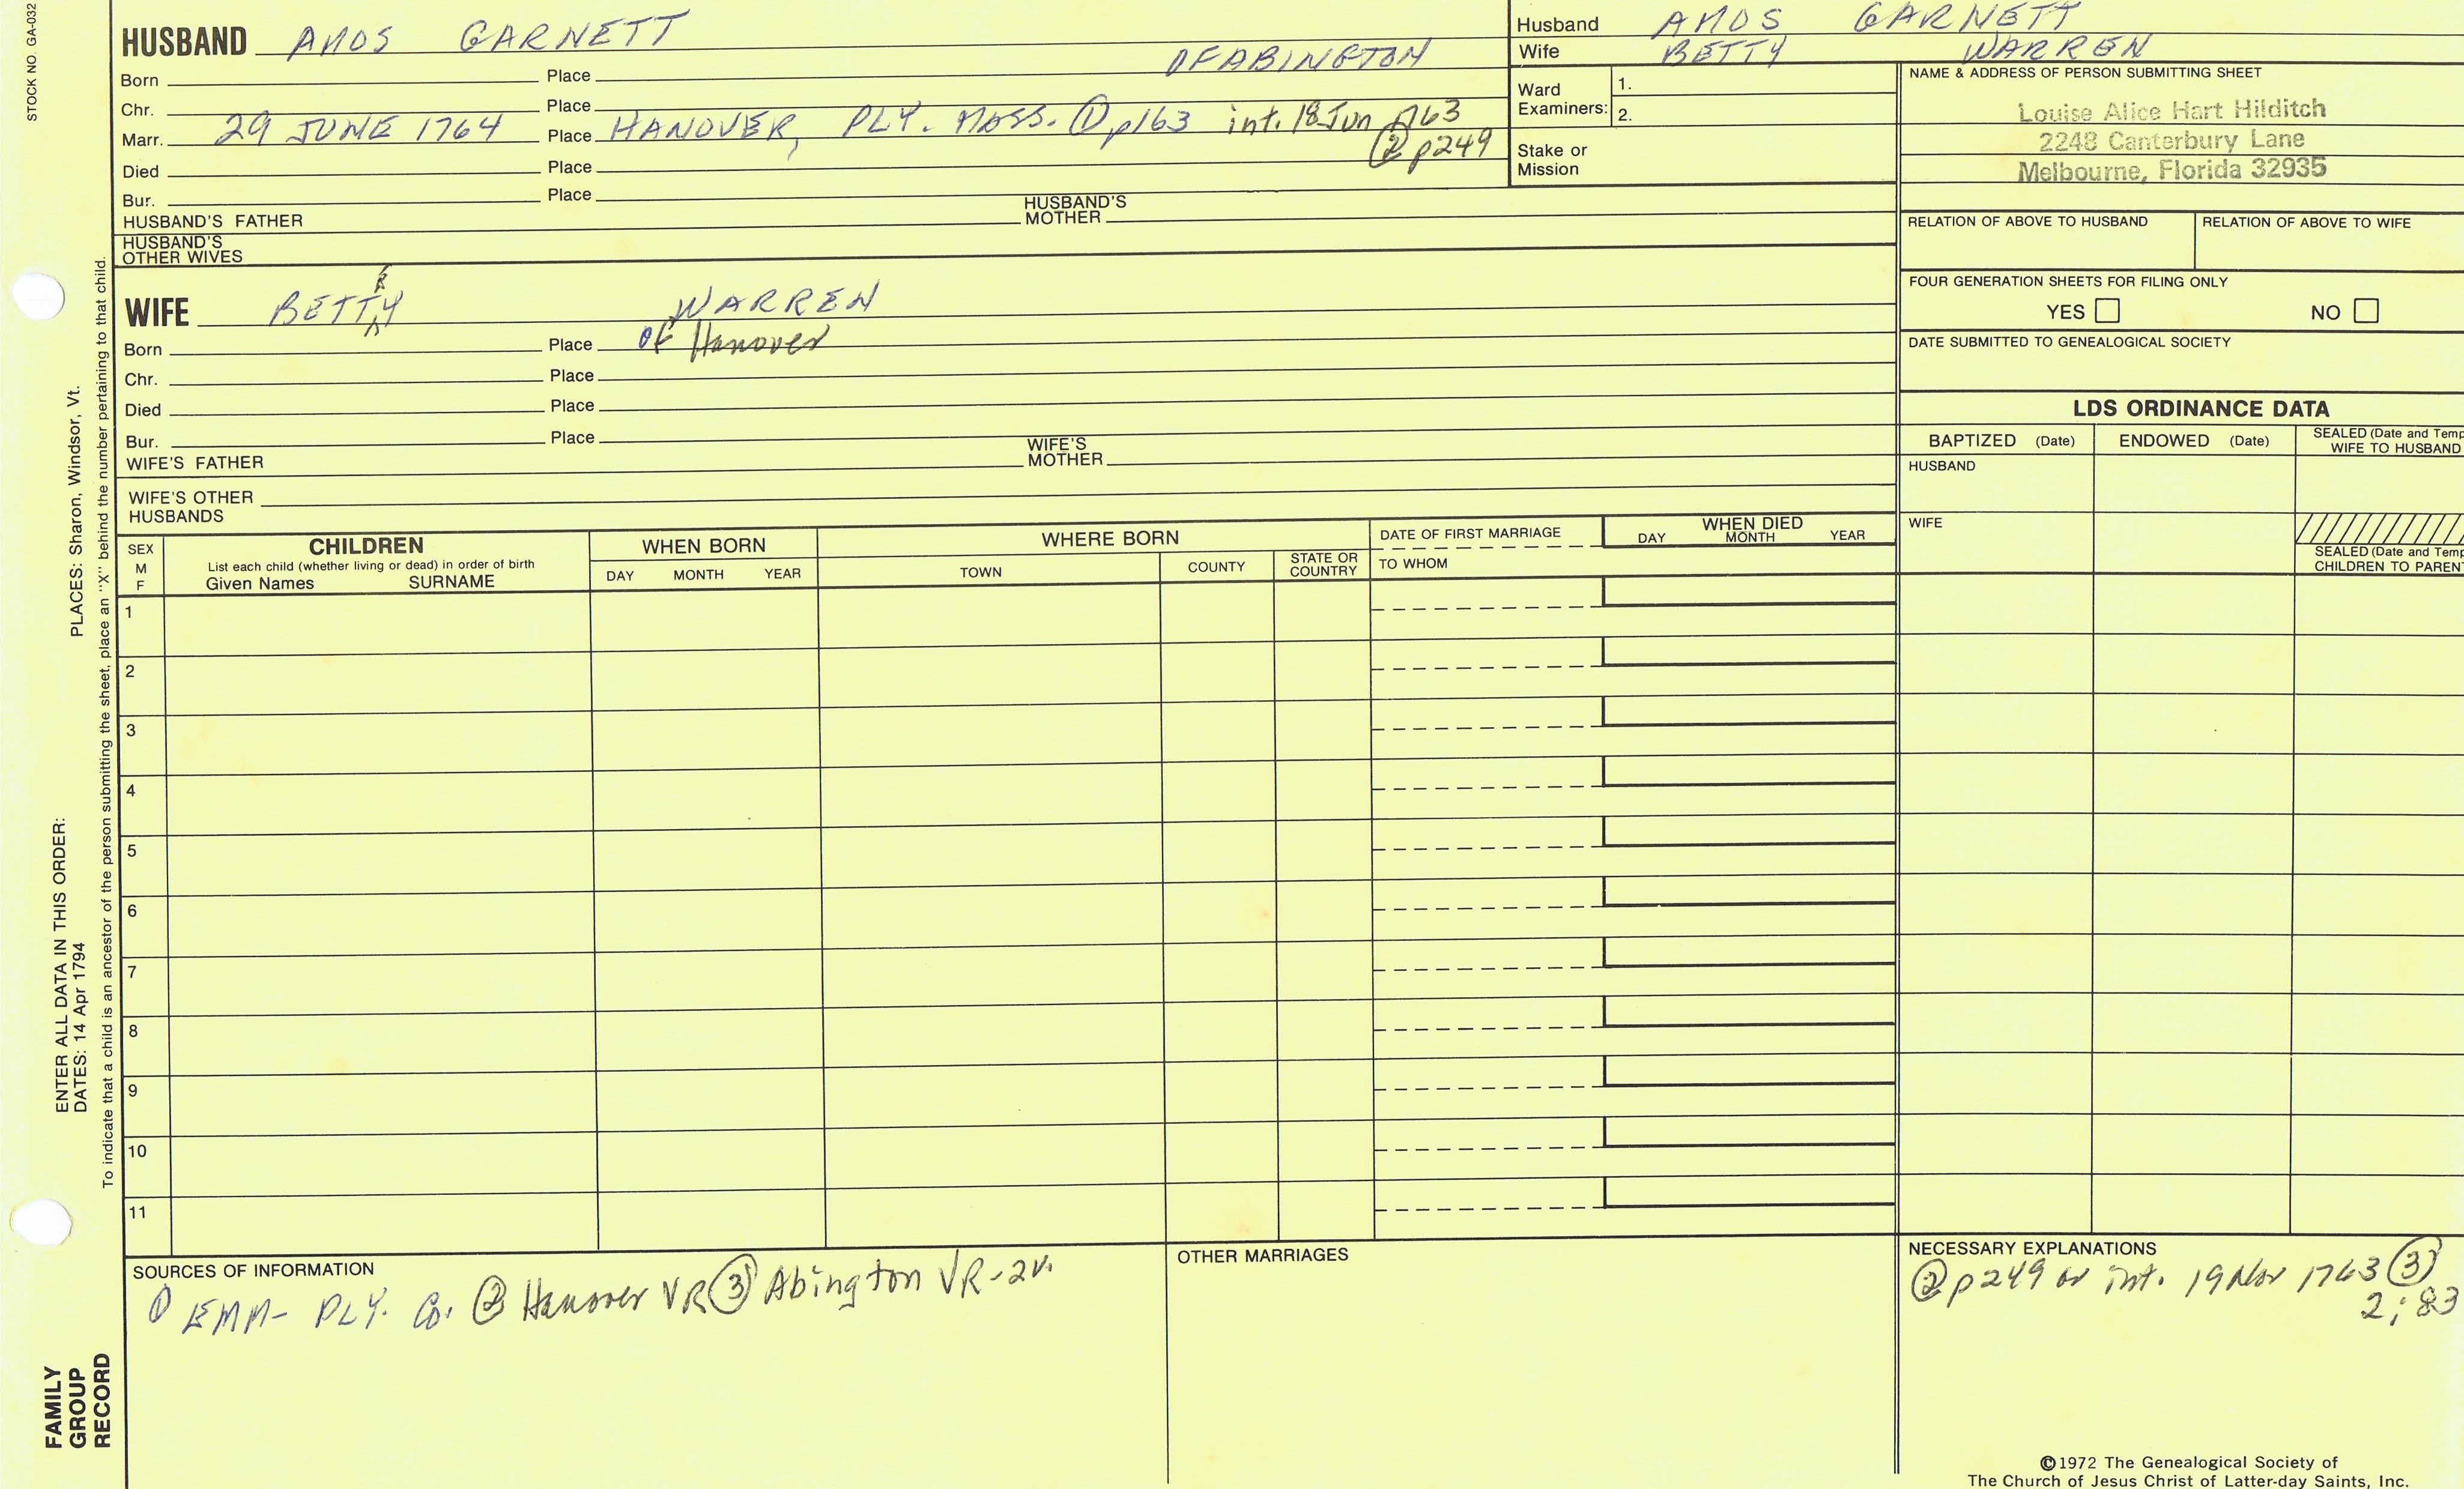 STOCK NO. GA-032
HUSBAND AMOS GARNETT
OF ABINGTON
Born Place
Chr. Place
Marr. 29 JUNE 1764 Place HANOVER, PLY. MASS. ① p163 int. 18 Jun 1763
② p249
Died Place
Bur. Place
HUSBAND'S FATHER HUSBAND'S MOTHER
HUSBAND'S
OTHER WIVES
Husband AMOS GARNETT
Wife BETTY WARREN
Ward
Examiners: 1.
2.
Stake or
Mission
NAME & ADDRESS OF PERSON SUBMITTING SHEET
Louise Alice Hart Hilditch
2248 Canterbury Lane
Melbourne, Florida 32935
RELATION OF ABOVE TO HUSBAND RELATION OF ABOVE TO WIFE
FOUR GENERATION SHEETS FOR FILING ONLY
YES NO
DATE SUBMITTED TO GENEALOGICAL SOCIETY
WIFE BETTY WARREN
Born Place of Hanover
Chr. Place
Died Place
Bur. Place
WIFE'S FATHER WIFE'S MOTHER
WIFE'S OTHER
HUSBANDS
LDS ORDINANCE DATA
BAPTIZED (Date) ENDOWED (Date) SEALED (Date and Temp
WIFE TO HUSBAND
HUSBAND
WIFE
SEALED (Date and Temp
CHILDREN TO PAREN
SEX
M
F
CHILDREN
List each child (whether living or dead) in order of birth
Given Names SURNAME
WHEN BORN
DAY MONTH YEAR
WHERE BORN
TOWN COUNTY STATE OR COUNTRY
DATE OF FIRST MARRIAGE
TO WHOM
WHEN DIED
DAY MONTH YEAR
1
2
3
4
5
6
7
8
9
10
11
SOURCES OF INFORMATION
① EMM- PLY. Co. ② Hanover VR ③ Abington VR-2v.
OTHER MARRIAGES
NECESSARY EXPLANATIONS
② p249 or int. 19 Nov 1763 ③
2; 83
©1972 The Genealogical Society of
The Church of Jesus Christ of Latter-day Saints, Inc.
ENTER ALL DATA IN THIS ORDER:
DATES: 14 Apr 1794
PLACES: Sharon, Windsor, Vt.
To indicate that a child is an ancestor of the person submitting the sheet, place an "X" behind the number pertaining to that child.
FAMILY
GROUP
RECORD